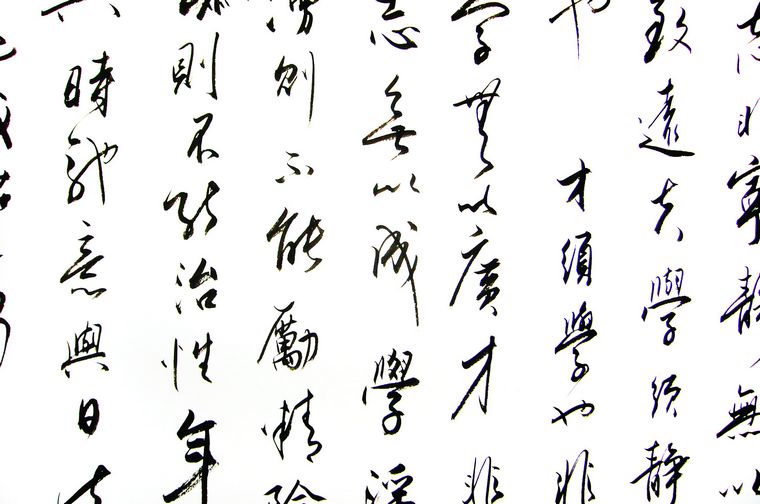 非寧靜無以
致遠夫學須靜
也才須學也非
學無以廣才非
志無以成學淫
慢則不能勵精險
躁則不能治性年
與時馳意與日去